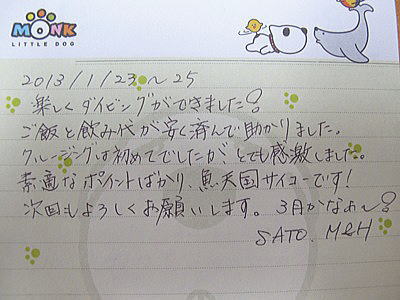 MONK
LITTLE DOG
2013/1/23～25
楽しくダイビングができました♡
ご飯と飲み代が安く済んで助かりました。
クルージングは初めてでしたが、とても感激しました。
素適なポイントばかり、魚天国サイコーです！
次回もよろしくお願いします。3月かなぁ～♡
SATO. M&H